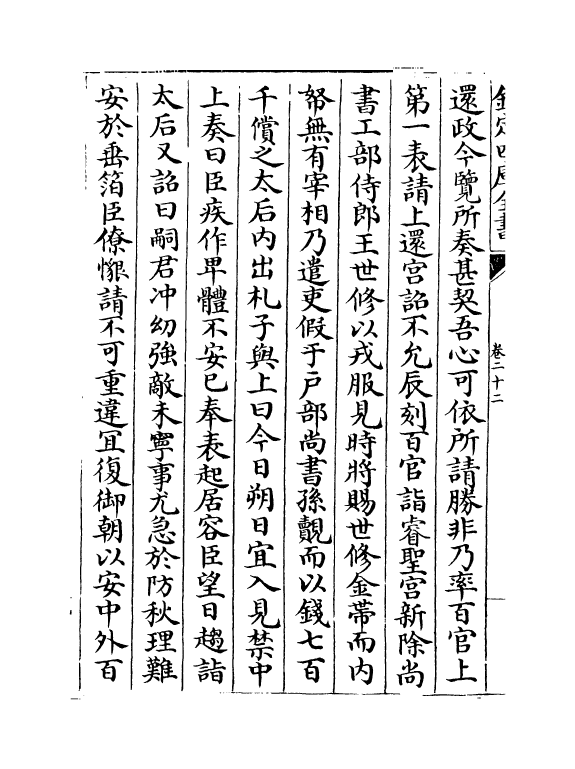 欽定四庫全書
卷二十二
還政今覽所奏甚契吾心可依所請勝非乃率百官上
第一表請上還宫詔不允辰刻百官詣睿聖宫新除尚
書工部侍郎王世修以戎服見時將賜世修金帶而内
帑無有宰相乃遣吏假于户部尚書孫覿而以錢七百
千償之太后内出札子與上曰今日朔日宜入見禁中
上奏曰臣疾作畢體不安已奉表起居容臣望日趨詣
太后又詔曰嗣君冲幼強敵未寧事尤急於防秋理難
安於垂箔臣僚懇請不可重違宜復御朝以安中外百